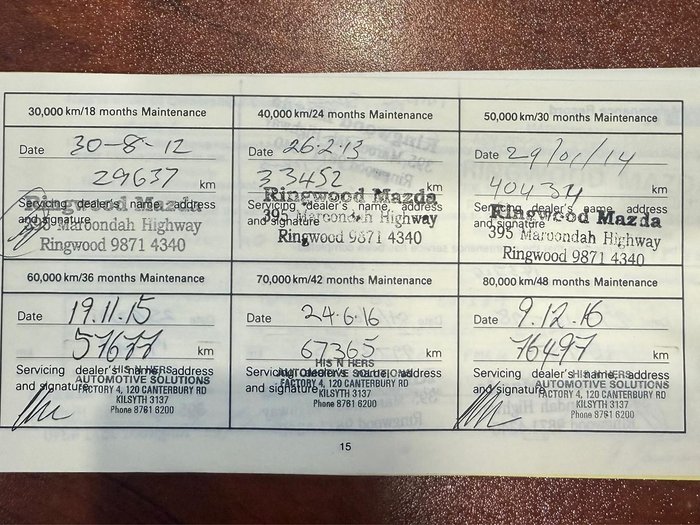 30,000 km/18 months Maintenance
Date 30-8-12
29637 km
Servicing dealer's name, address
and signature
Ringwood Mazda
395 Maroondah Highway
Ringwood 9871 4340
40,000 km/24 months Maintenance
Date 26.2.13
33452 km
Servicing dealer's name, address
and signature
Ringwood Mazda
395 Maroondah Highway
Ringwood 9871 4340
50,000 km/30 months Maintenance
Date 29/01/14
40434 km
Servicing dealer's name, address
and signature
Ringwood Mazda
395 Maroondah Highway
Ringwood 9871 4340
60,000 km/36 months Maintenance
Date 19.11.15
57677 km
Servicing dealer's name, address
and signature
HIS N HERS
AUTOMOTIVE SOLUTIONS
FACTORY 4, 120 CANTERBURY RD
KILSYTH 3137
Phone 8761 6200
70,000 km/42 months Maintenance
Date 24.6.16
67365 km
Servicing dealer's name, address
and signature
HIS N HERS
AUTOMOTIVE SOLUTIONS
FACTORY 4, 120 CANTERBURY RD
KILSYTH 3137
Phone 8761 6200
80,000 km/48 months Maintenance
Date 9.12.16
76497 km
Servicing dealer's name, address
and signature
HIS N HERS
AUTOMOTIVE SOLUTIONS
FACTORY 4, 120 CANTERBURY RD
KILSYTH 3137
Phone 8761 6200
15